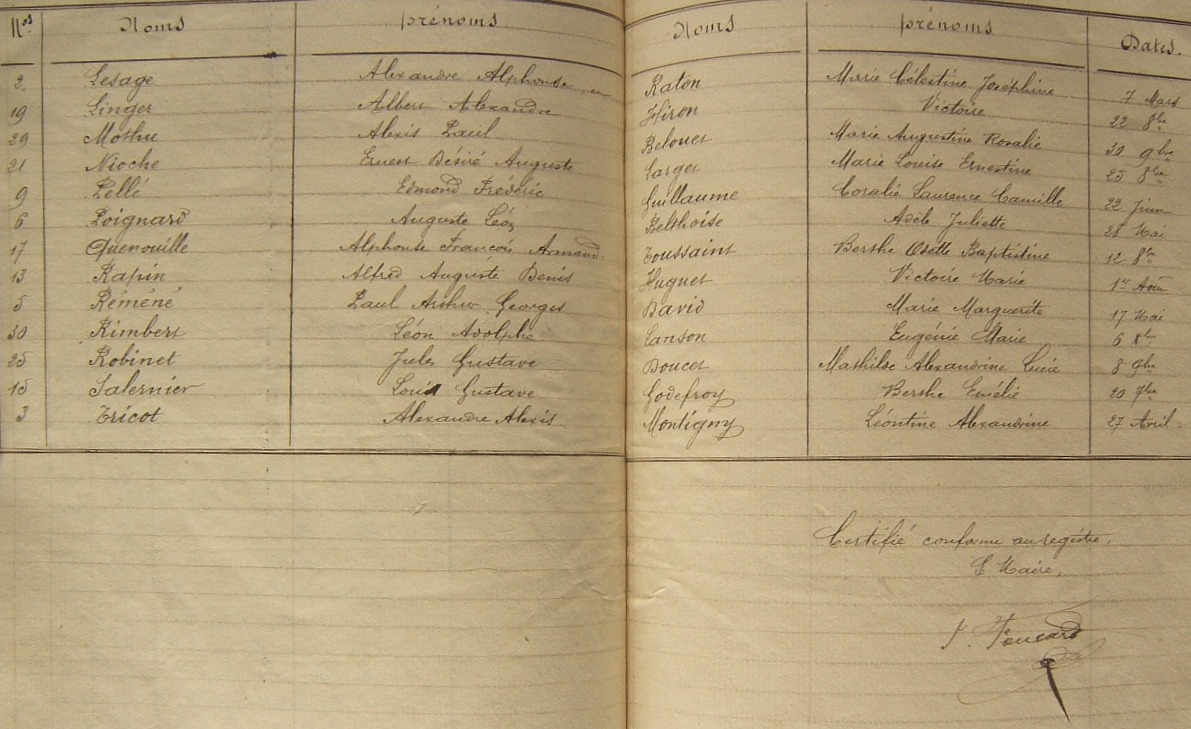 Nos Noms prénoms Noms prénoms Dates.
2 Lesage Alexandre Alphonse, et Raton Marie Célestine Joséphine 7 Mars
19 Linger Albert Alexandre Hiron Victoire 22 8bre
29 Mothu Alexis Paul Belouet Marie Augustine Rosalie 30 9bre
21 Nioche Ernest Désiré Auguste Sarget Marie Louise Ernestine 25 8bre
9 Pellé Edmond Frédéric Guillaume Coralie Laurence Camille 22 Juin
6 Poignard Auguste Léon Belthoise Adèle Juliette 28 Mai
17 Quenouille Alphonse François Armand Toussaint Berthe Odette Baptistine 12 8bre
13 Rapin Alfred Auguste Denis Huguet Victoire Marie 1er
5 Réméné Paul Arthur Georges David Marie Marguerite 17 Mai
30 Rimbert Léon Adolphe Lanson Eugénie Marie 6
25 Robinet Jules Gustave Doucet Mathilde Alexandrine Lucie 8 9bre
15 Salernier Louis Gustave Godefroy Berthe Emélie 20 7bre
3 Tricot Alexandre Alexis Montigny Léontine Alexandrine 27 Avril
Certifié conforme au registre,
Le Maire,